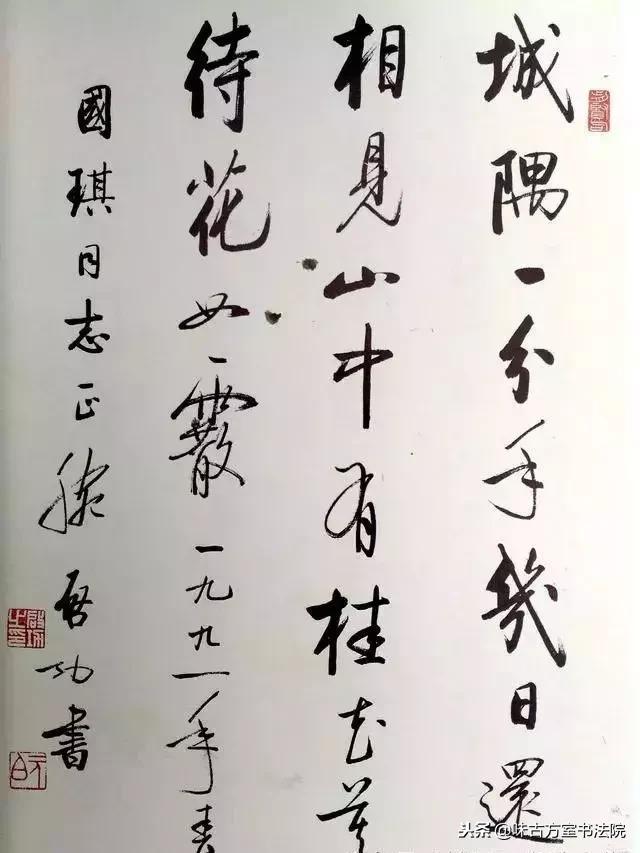 城隅一分手幾日還
相見山中有桂花莫
待花如霰一九九一年春
國琪同志正腕启功書
啓功之印
元白
头条@味古方室书法院